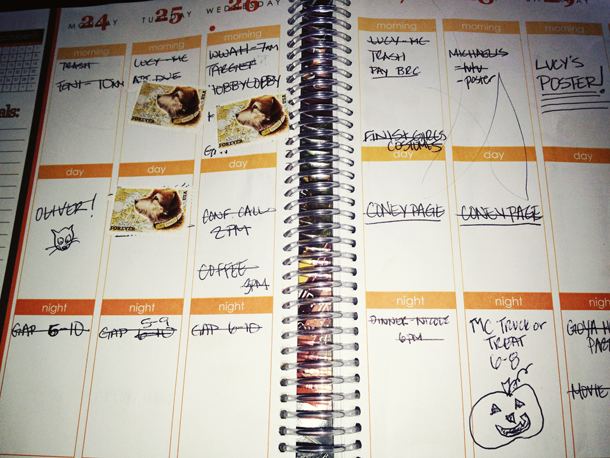 MONDAY 24
TUESDAY 25
WEDNESDAY 26
29
morning
TRASH
morning
LUCY - MC
ART DUE
FOREVER
morning
WWAH - 7am
TARGET
HOBBYLOBBY
FOREVER
morning
LUCY - MC
TRASH
PAY BRC
FINISH GIRLS
COSTUMES
morning
MICHAELS
- poster
morning
LUCY'S
POSTER!
day
OLIVER!
day
FOREVER
day
CONF. CALL
2PM
COFFEE
3PM
day
CONEY PAGE
day
CONEY PAGE
day
night
GAP 6-10
night
5-9
GAP
night
GAP 6-10
night
DINNER - NICOLE
6PM
night
MC TRUCK OR
TREAT
6-8
night
MOVIE